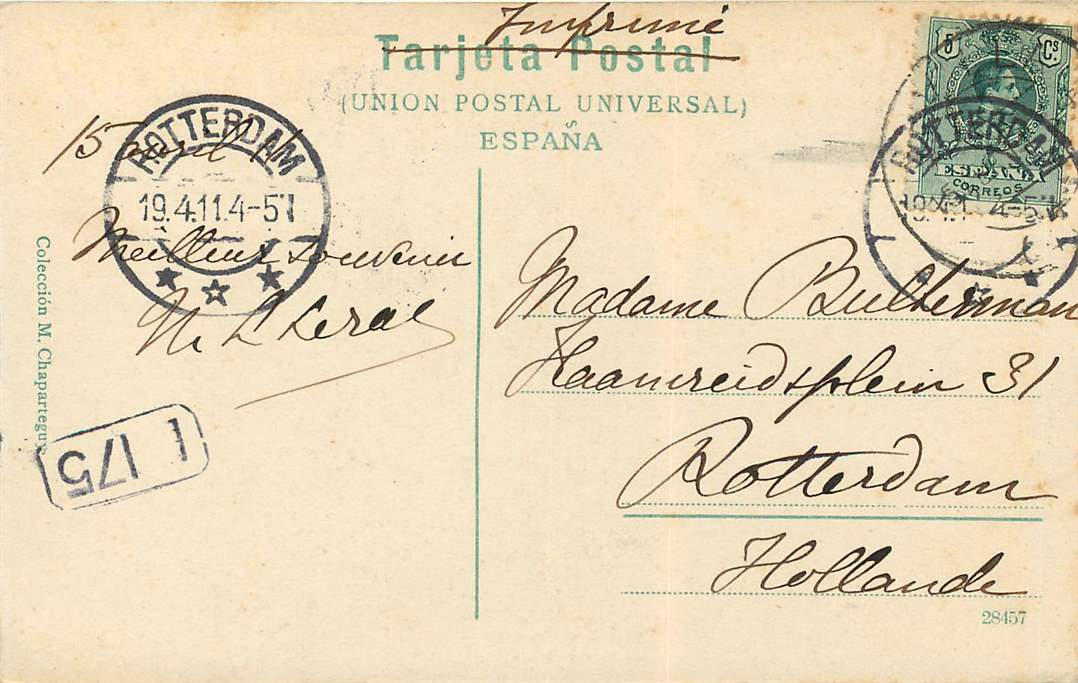 Imprimé
Tarjeta Postal
(UNION POSTAL UNIVERSAL)
ESPAÑA
5 Cs.
ESPAÑA
CORREOS
ROTTERDAM
19.4.11 4-5
15 avril 11
ROTTERDAM
19.4.11.4-5
Meilleur souvenir
Colección M. Chaparteguy
1 175
Madame Bulterman
Haamreidsplein 31
Rotterdam
Hollande
28457